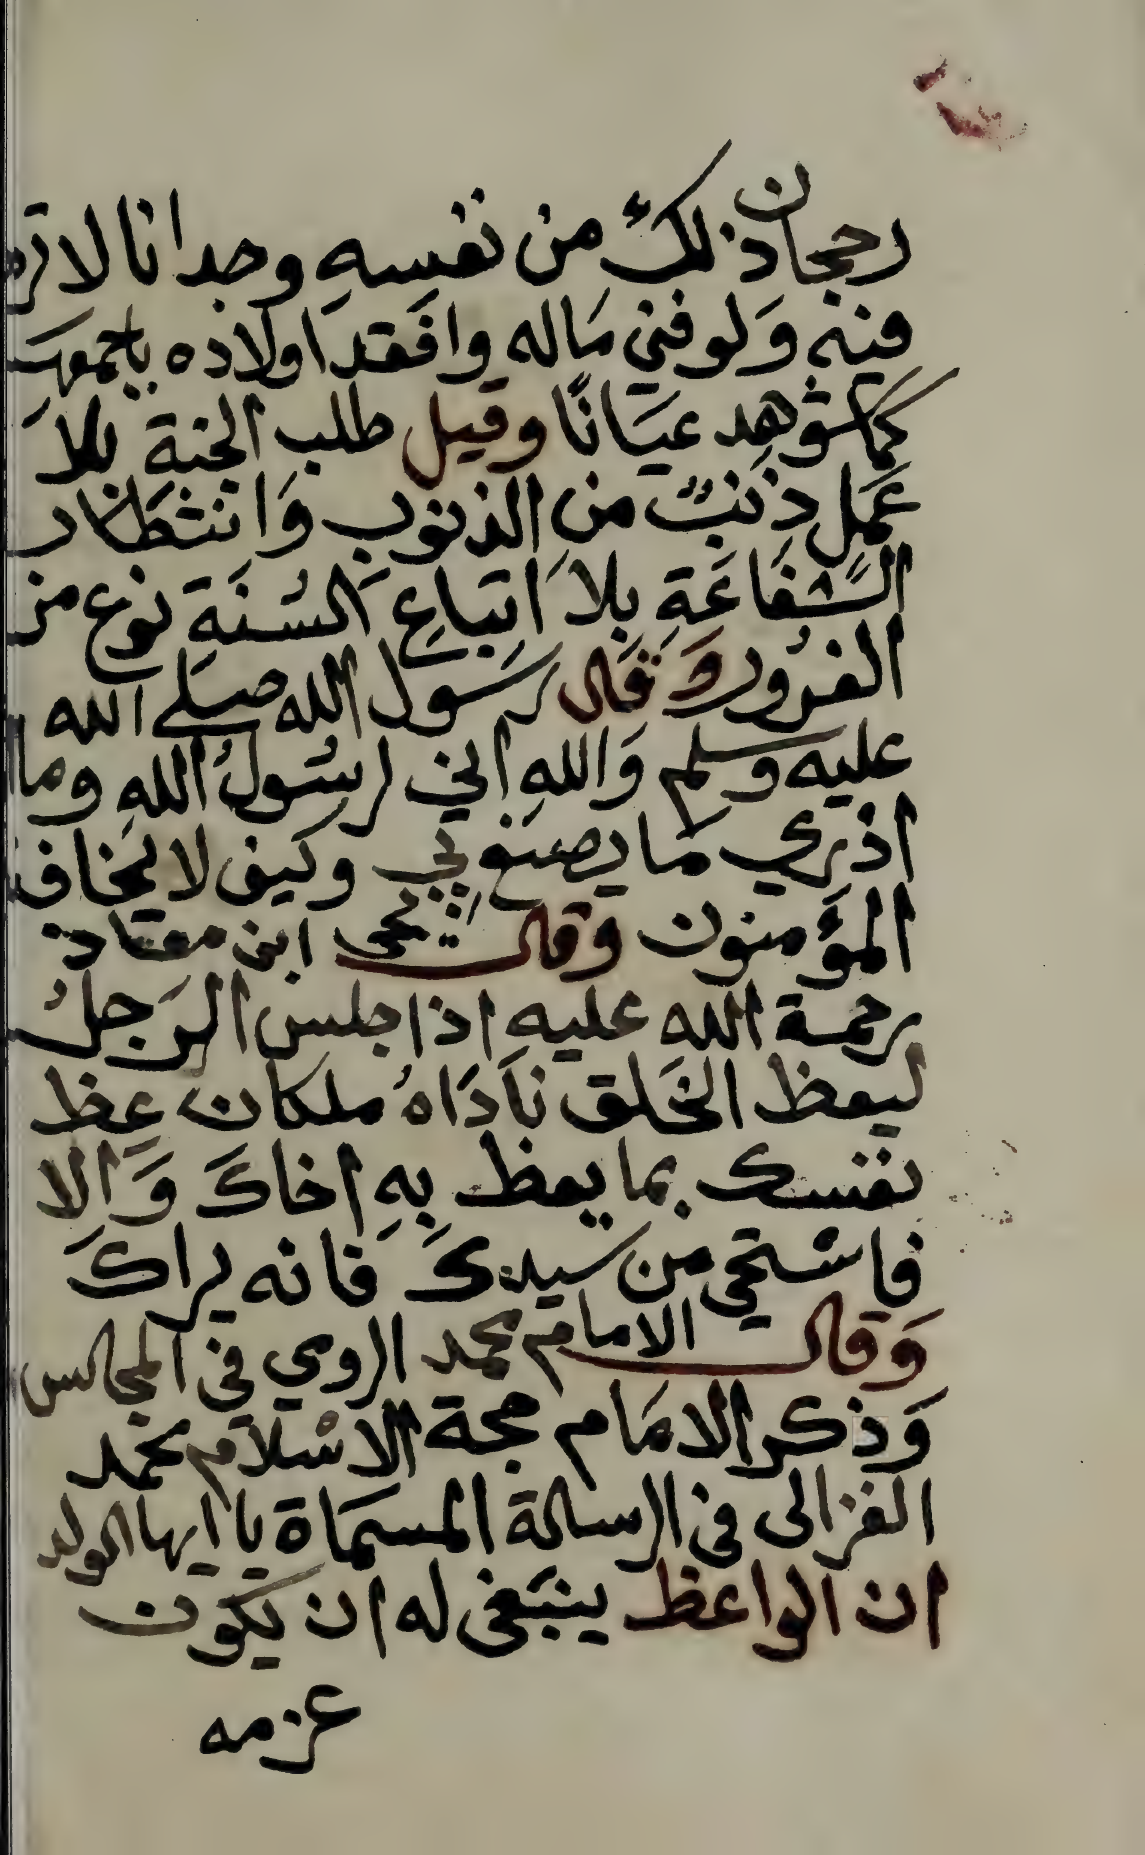 رجحان ذلك من نفسه وجدانا لا
فيه وَلو فني مَاله وافَقد اولاده باجمعهم
كما شوهد عيَانًا وقيل طلب الجنة بلاَ
عَمَلٍ ذنبٌ من الذنوبِ وَانتظار
الشفاعَةِ بلاَ اتباعِ السُنَةِ نوع من
الغرُور وَقال رسَول الله صلى الله
عليه وسلم وَاللهِ اني لرسُولُ اللهِ وما
ادري مَا يصنع بي وكيف لا يخافه
المؤَمنون وقال يحيى ابن معاذ
رحمة الله عليه اذا جلس الرَجلُ
ليعظ الخَلق نَادَاهُ ملكان عِظ
نفسك بما يعظ بهِ اخاكَ وَالا
فاستحي من سيدكَ فانه يراكَ
وَقال الامام محمد الرومي في المجالس
وَذكر الامَام حجة الاسْلام محمد
الغزالى في الرسالة المسمَاة يا ايها الولد
ان الواعظ ينبَغى له ان يكون
عزمه